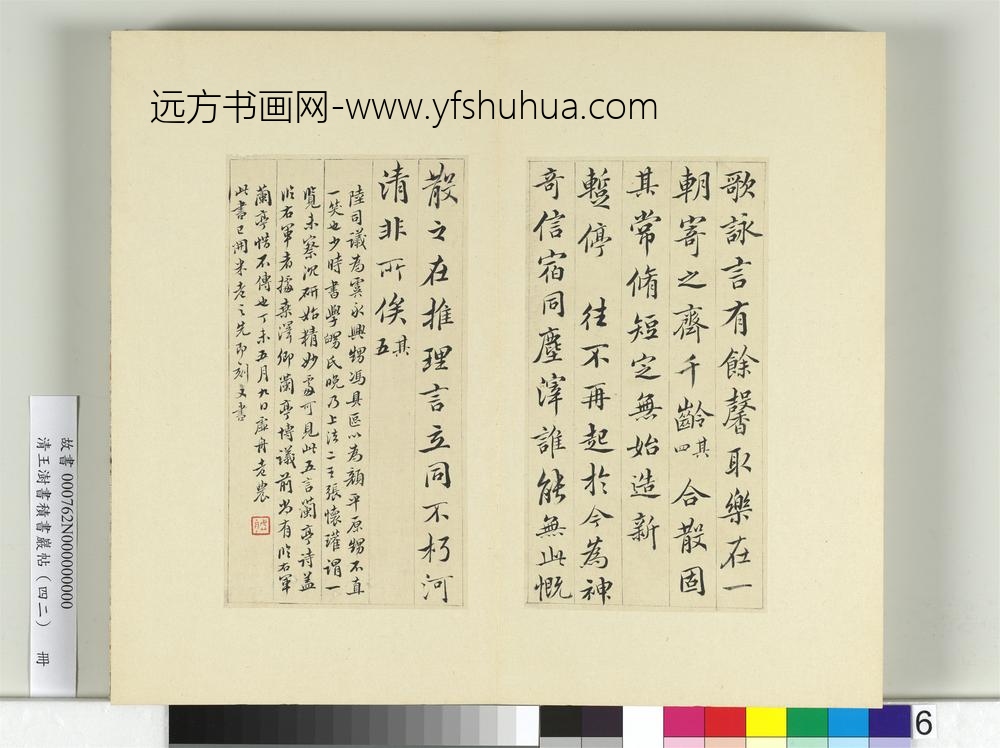 远方书画网-www.yfshuhua.com
歌詠言有餘馨取樂在一
朝寄之齊千齡其四合散固
其常脩短定無始造新
蹔停 往不再起於今為神
奇信宿同塵滓誰能無此慨
散之在推理言立同不朽河
清非所俟其五
陸司議為虞永興甥馮具區以為顏平原甥不直
一笑也少時書學甥氏晚乃上法二王張懷瓘謂一
覧未察沉研始精妙處可見此五言蘭亭詩蓋
臨右軍者據桑澤卿蘭亭博議前尚有臨右軍
蘭亭惜不傳也丁未五月九日虛舟老農
此書已開米老之先即刻又書
故書 000762N000000000
清王澍書積書巖帖(四二) 冊
6